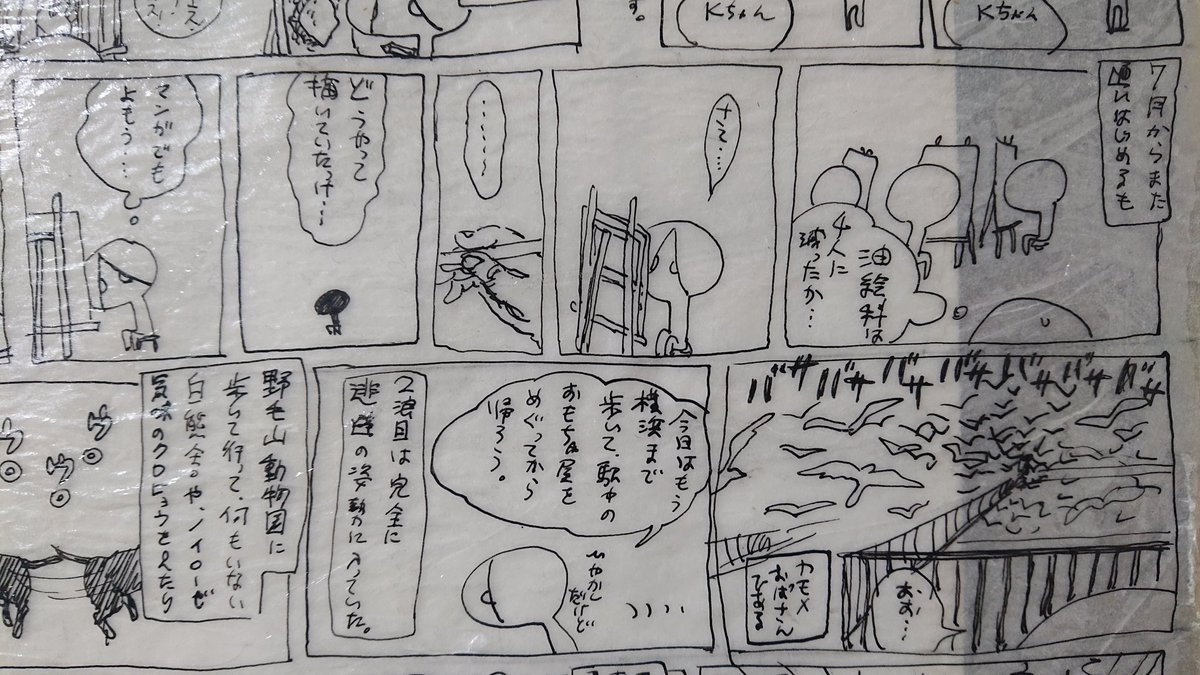 す。
Kちゃん
Kちゃん
7月からまた
通いはじめるも
油絵科は
4人に
減ったか…
さて…
どうやって
描いていたっけ…
マンガでも
よもう…
バサバサバサバサバサ
カモメ
おばさん
ひきいる
おお…
今日はもう
横浜まで
歩いて、駅中の
おもちゃ屋を
めぐってから
帰ろう。
ひやかし
だけど
2浪目は完全に
逃避の姿勢に入っていた。
野毛山動物園に
歩いて行って、何もいない
白熊舎や、ノイローゼ
気味のクロヒョウをみたり